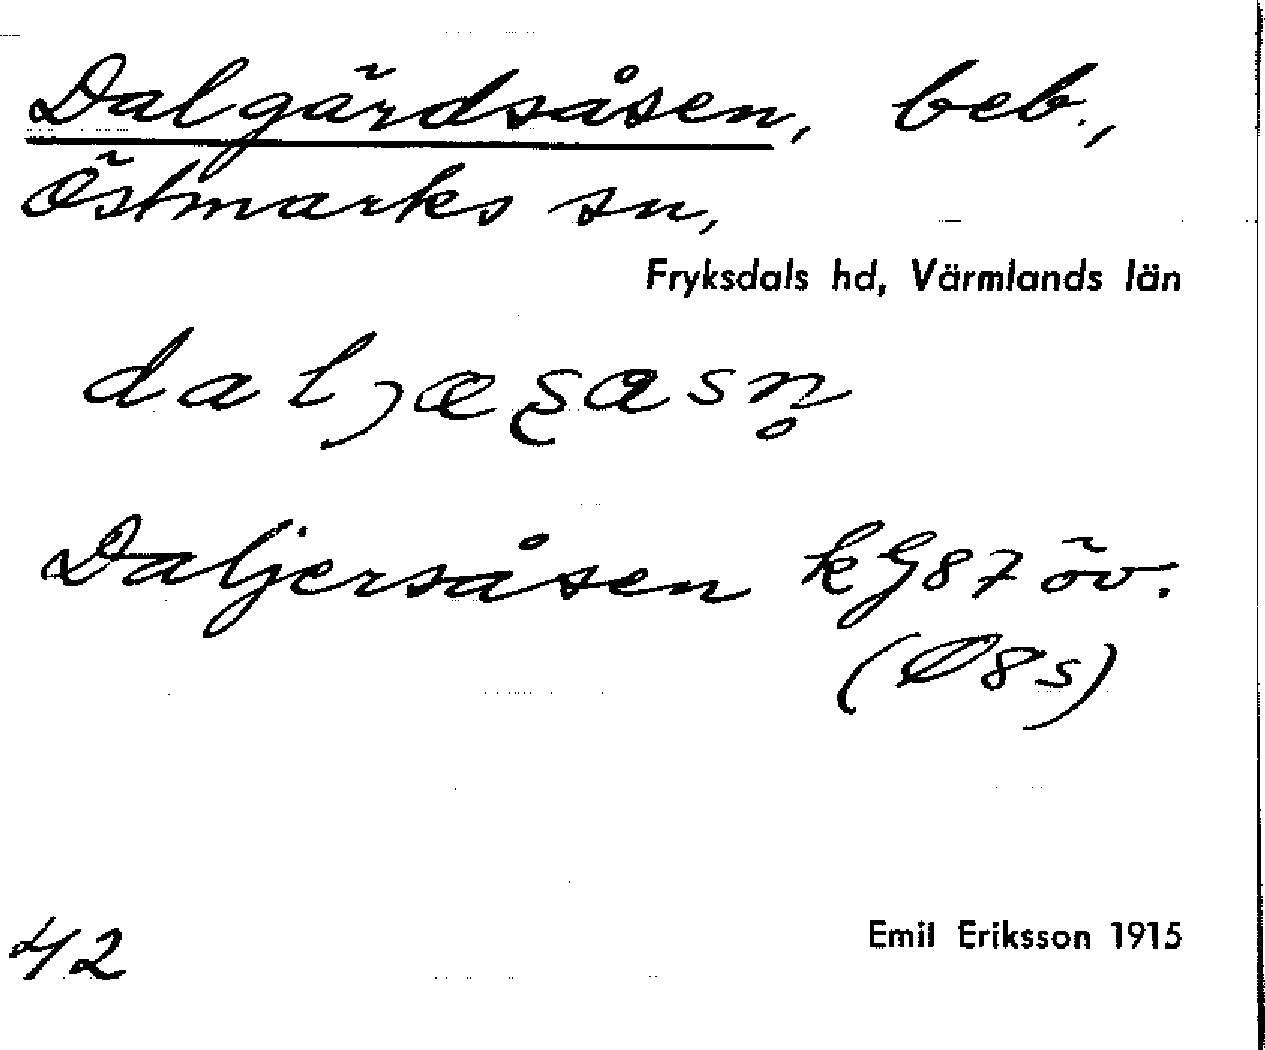 Dalgärdsåsen, beb.,
Östmarks sn,
Fryksdals hd, Värmlands län
Daljersåsen kG87 öv.
(Ø8s)
42
Emil Eriksson 1915